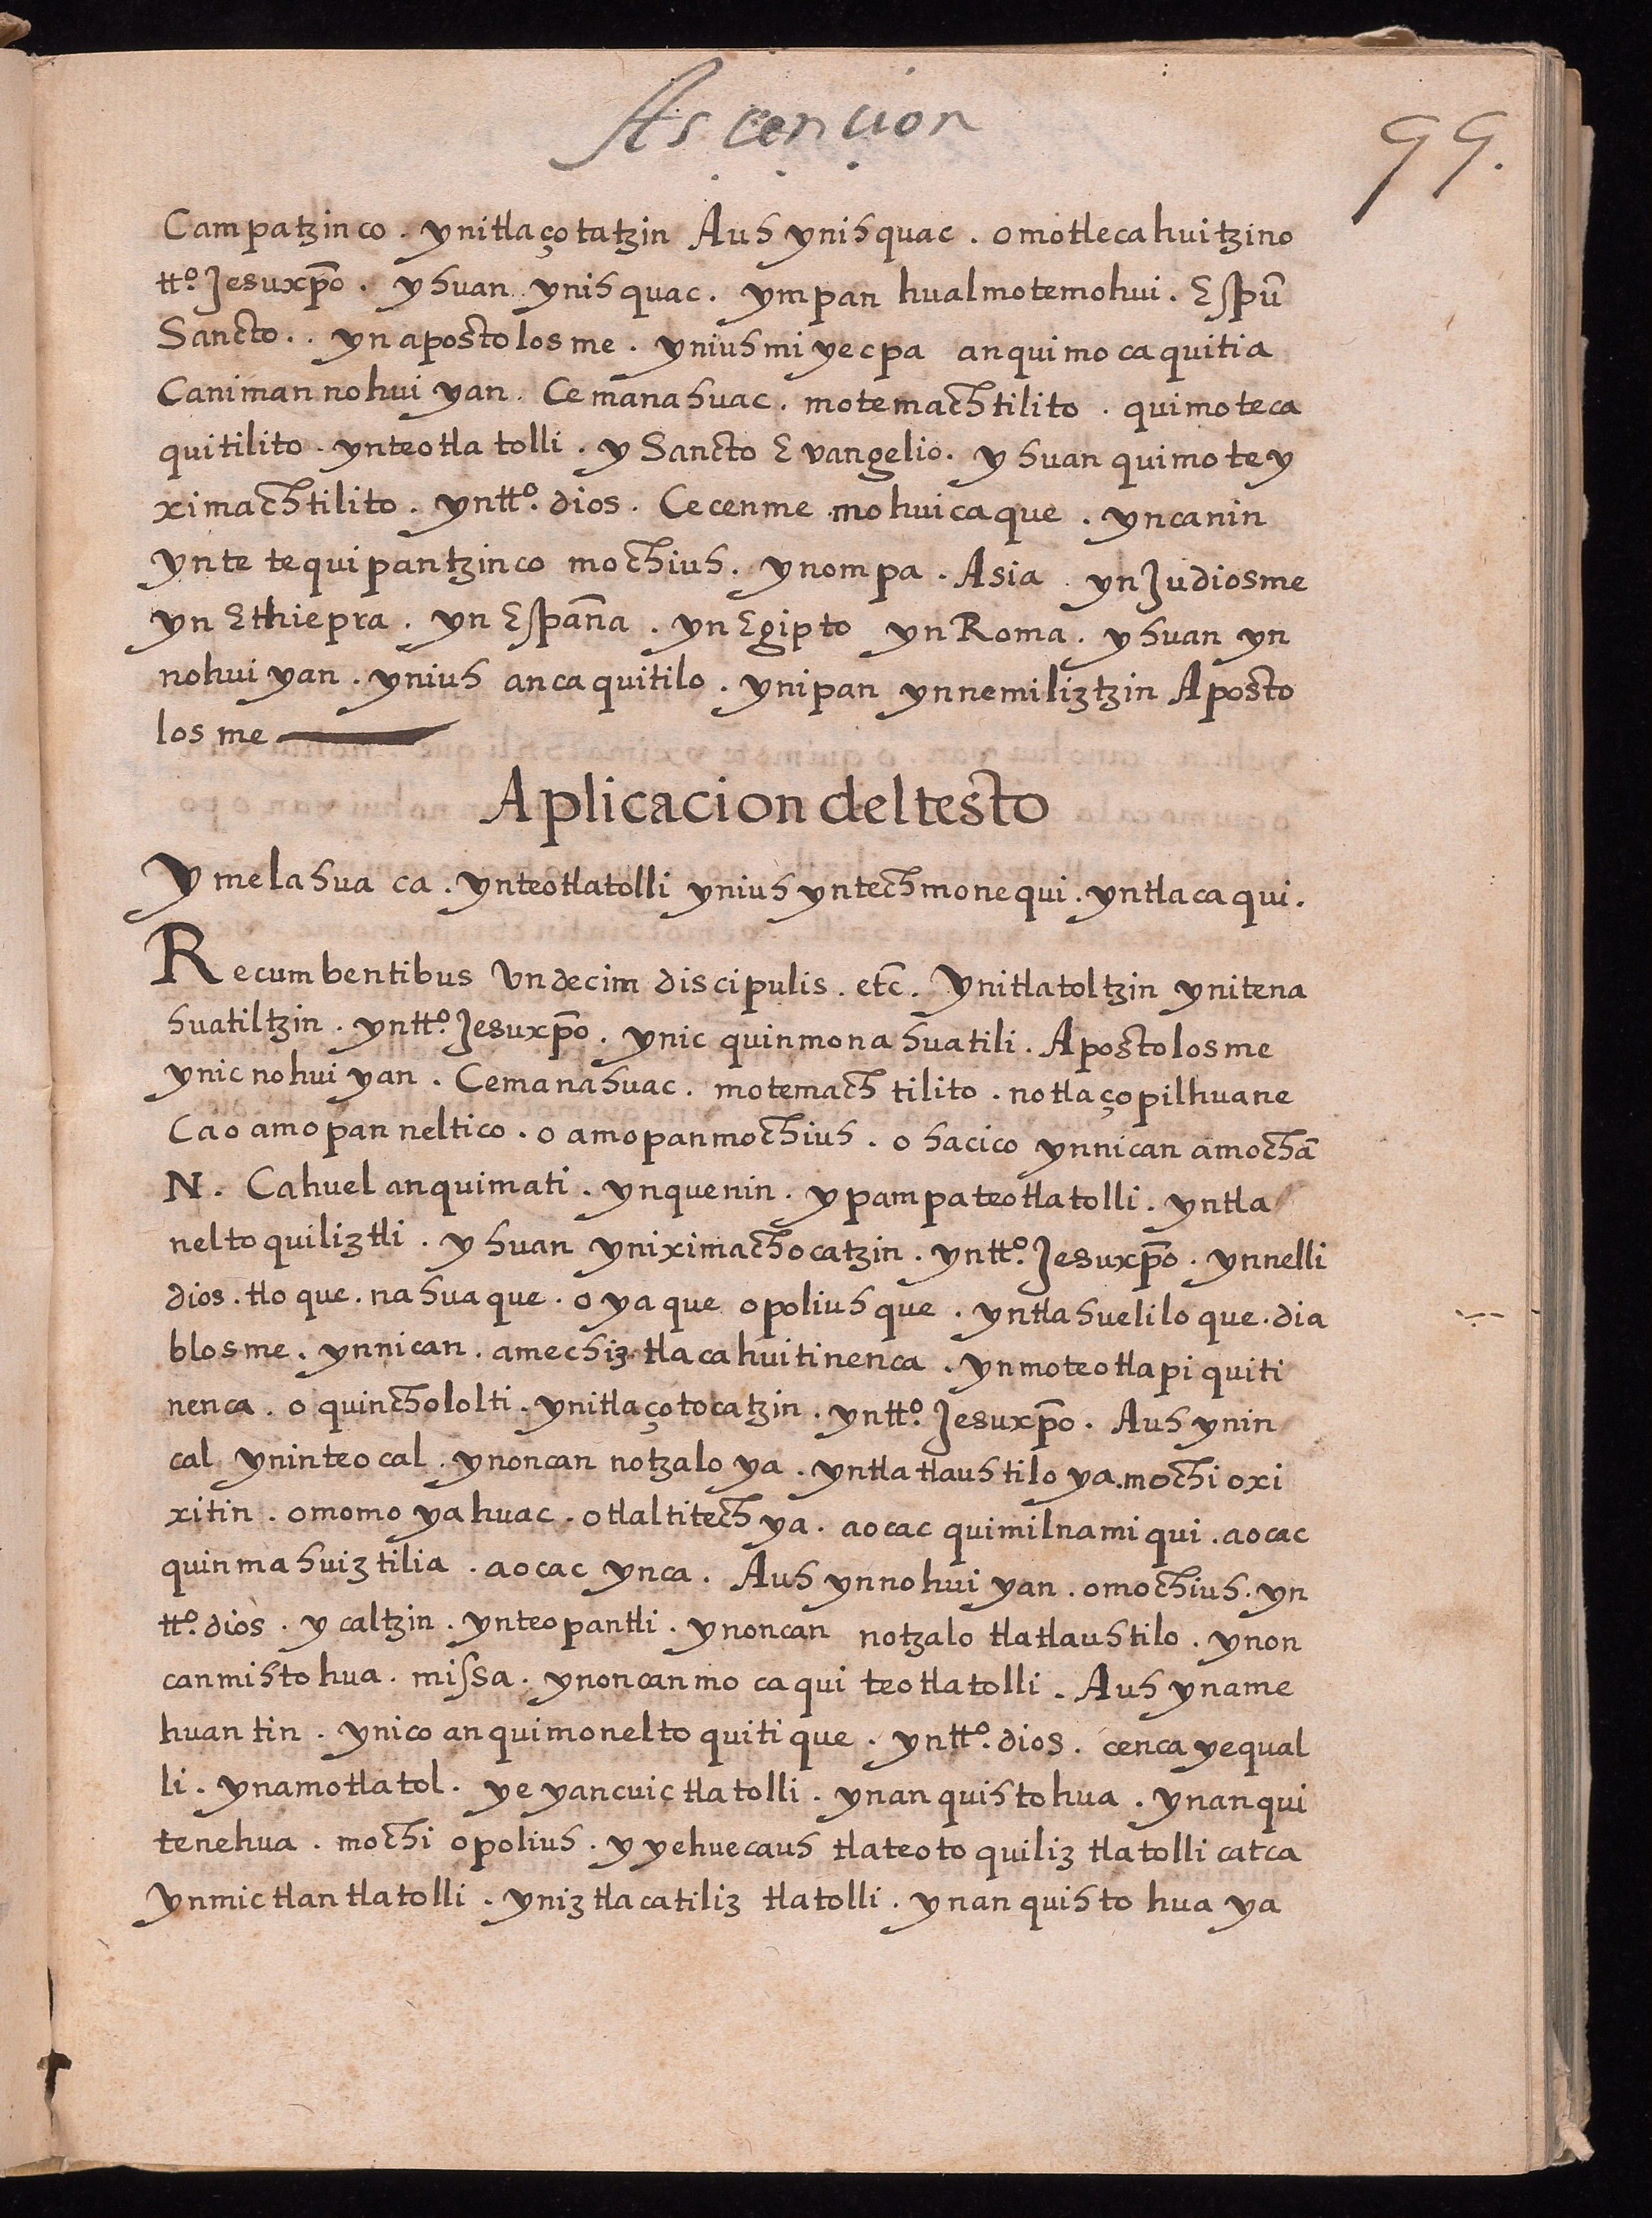 Ascencion
99.
Campatzinco . ynitlaçotatzin Auh ynihquac . omotlecahuitzino
tto. Jesuxpo . yhuan ynihquac . ympan hualmotemohui . Espu
Sancto . . yn apostolosme . yniuhmiyecpa anquimocaquitia
Caniman nohuiyan . Cemanahuac . motemachtilito . quimoteca
quitilito . ynteotlatolli . y Sancto Evangelio . yhuan quimotey
ximachtilito . yntto. dios . Cecenme mohuicaque . yncanin
ynte tequipantzinco mochiuh . ynompa . Asia . yn Judiosme
yn Ethiepra . yn Espana . yn Egipto yn Roma . yhuan yn
nohuiyan . yniuh ancaquitilo . ynipan ynnemiliztzin Aposto
losme
Aplicacion del testo
Ymelahuaca . ynteotlatolli yniuh yntechmonequi . yntlacaqui .
Recumbentibus Undecim discipulis . etc . Ynitlatoltzin ynitena
huatiltzin . yntto. Jesuxpo . ynic quinmonahuatili . Apostolosme
ynic nohuiyan . Cemanahuac . motemachtilito . notlaçopilhuane
Cao amopan neltico . o amopanmochiuh . o hacico ynnican amochā
N . Cahuel anquimati . ynquenin . ypampateotlatolli . yntla
neltoquiliztli . yhuan yniximachocatzin . yntto. Jesuxpo . ynnelli
dios . tloque . nahuaque . o yaque opoliuhque . yntlahueliloque . dia
blosme . ynnican . amechiztlacahuitinenca . ynmoteotlapiquiti
nenca . o quinchololti . ynitlaçotocatzin . yntto. Jesuxpo . Auh ynin
cal yninteocal . ynoncan notzaloya . yntlatlauhtiloya . mochi oxi
xitin . omomoyahuac . otlaltitechya . aocac quimilnamiqui . aocac
quinmahuiztilia . aocac ynca . Auh ynnohuiyan . omochiuh . yn
tto. dios . ycaltzin . ynteopantli . ynoncan notzalo tlatlauhtilo . ynon
canmihtohua . missa . ynoncanmo caqui teotlatolli . Auh yname
huantin . ynico anquimoneltoquitique . yntto. dios . cenca yequal
li . ynamotlatol . ye yancuic tlatolli . ynanquihtohua . ynanqui
tenehua . mochi opoliuh . y yehuecauh tlateotoquiliz tlatolli catca
ynmictlantlatolli . yniztlacatiliz tlatolli . ynanquihto hua ya